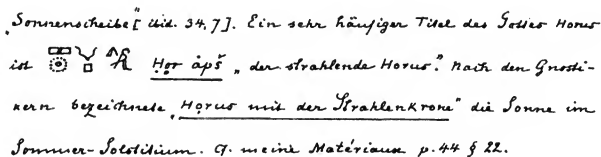 „Sonnenscheibe“ [ibid. 34,7]. Ein sehr häufiger Titel des Gottes Horus
ist Ḥor åpš „der strahlende Horus.“ Nach den Gnosti-
kern bezeichnete „Horus mit der Strahlenkrone“ die Sonne im
Sommer-Solstitium. Cf. meine Matériaux p. 44 § 22.